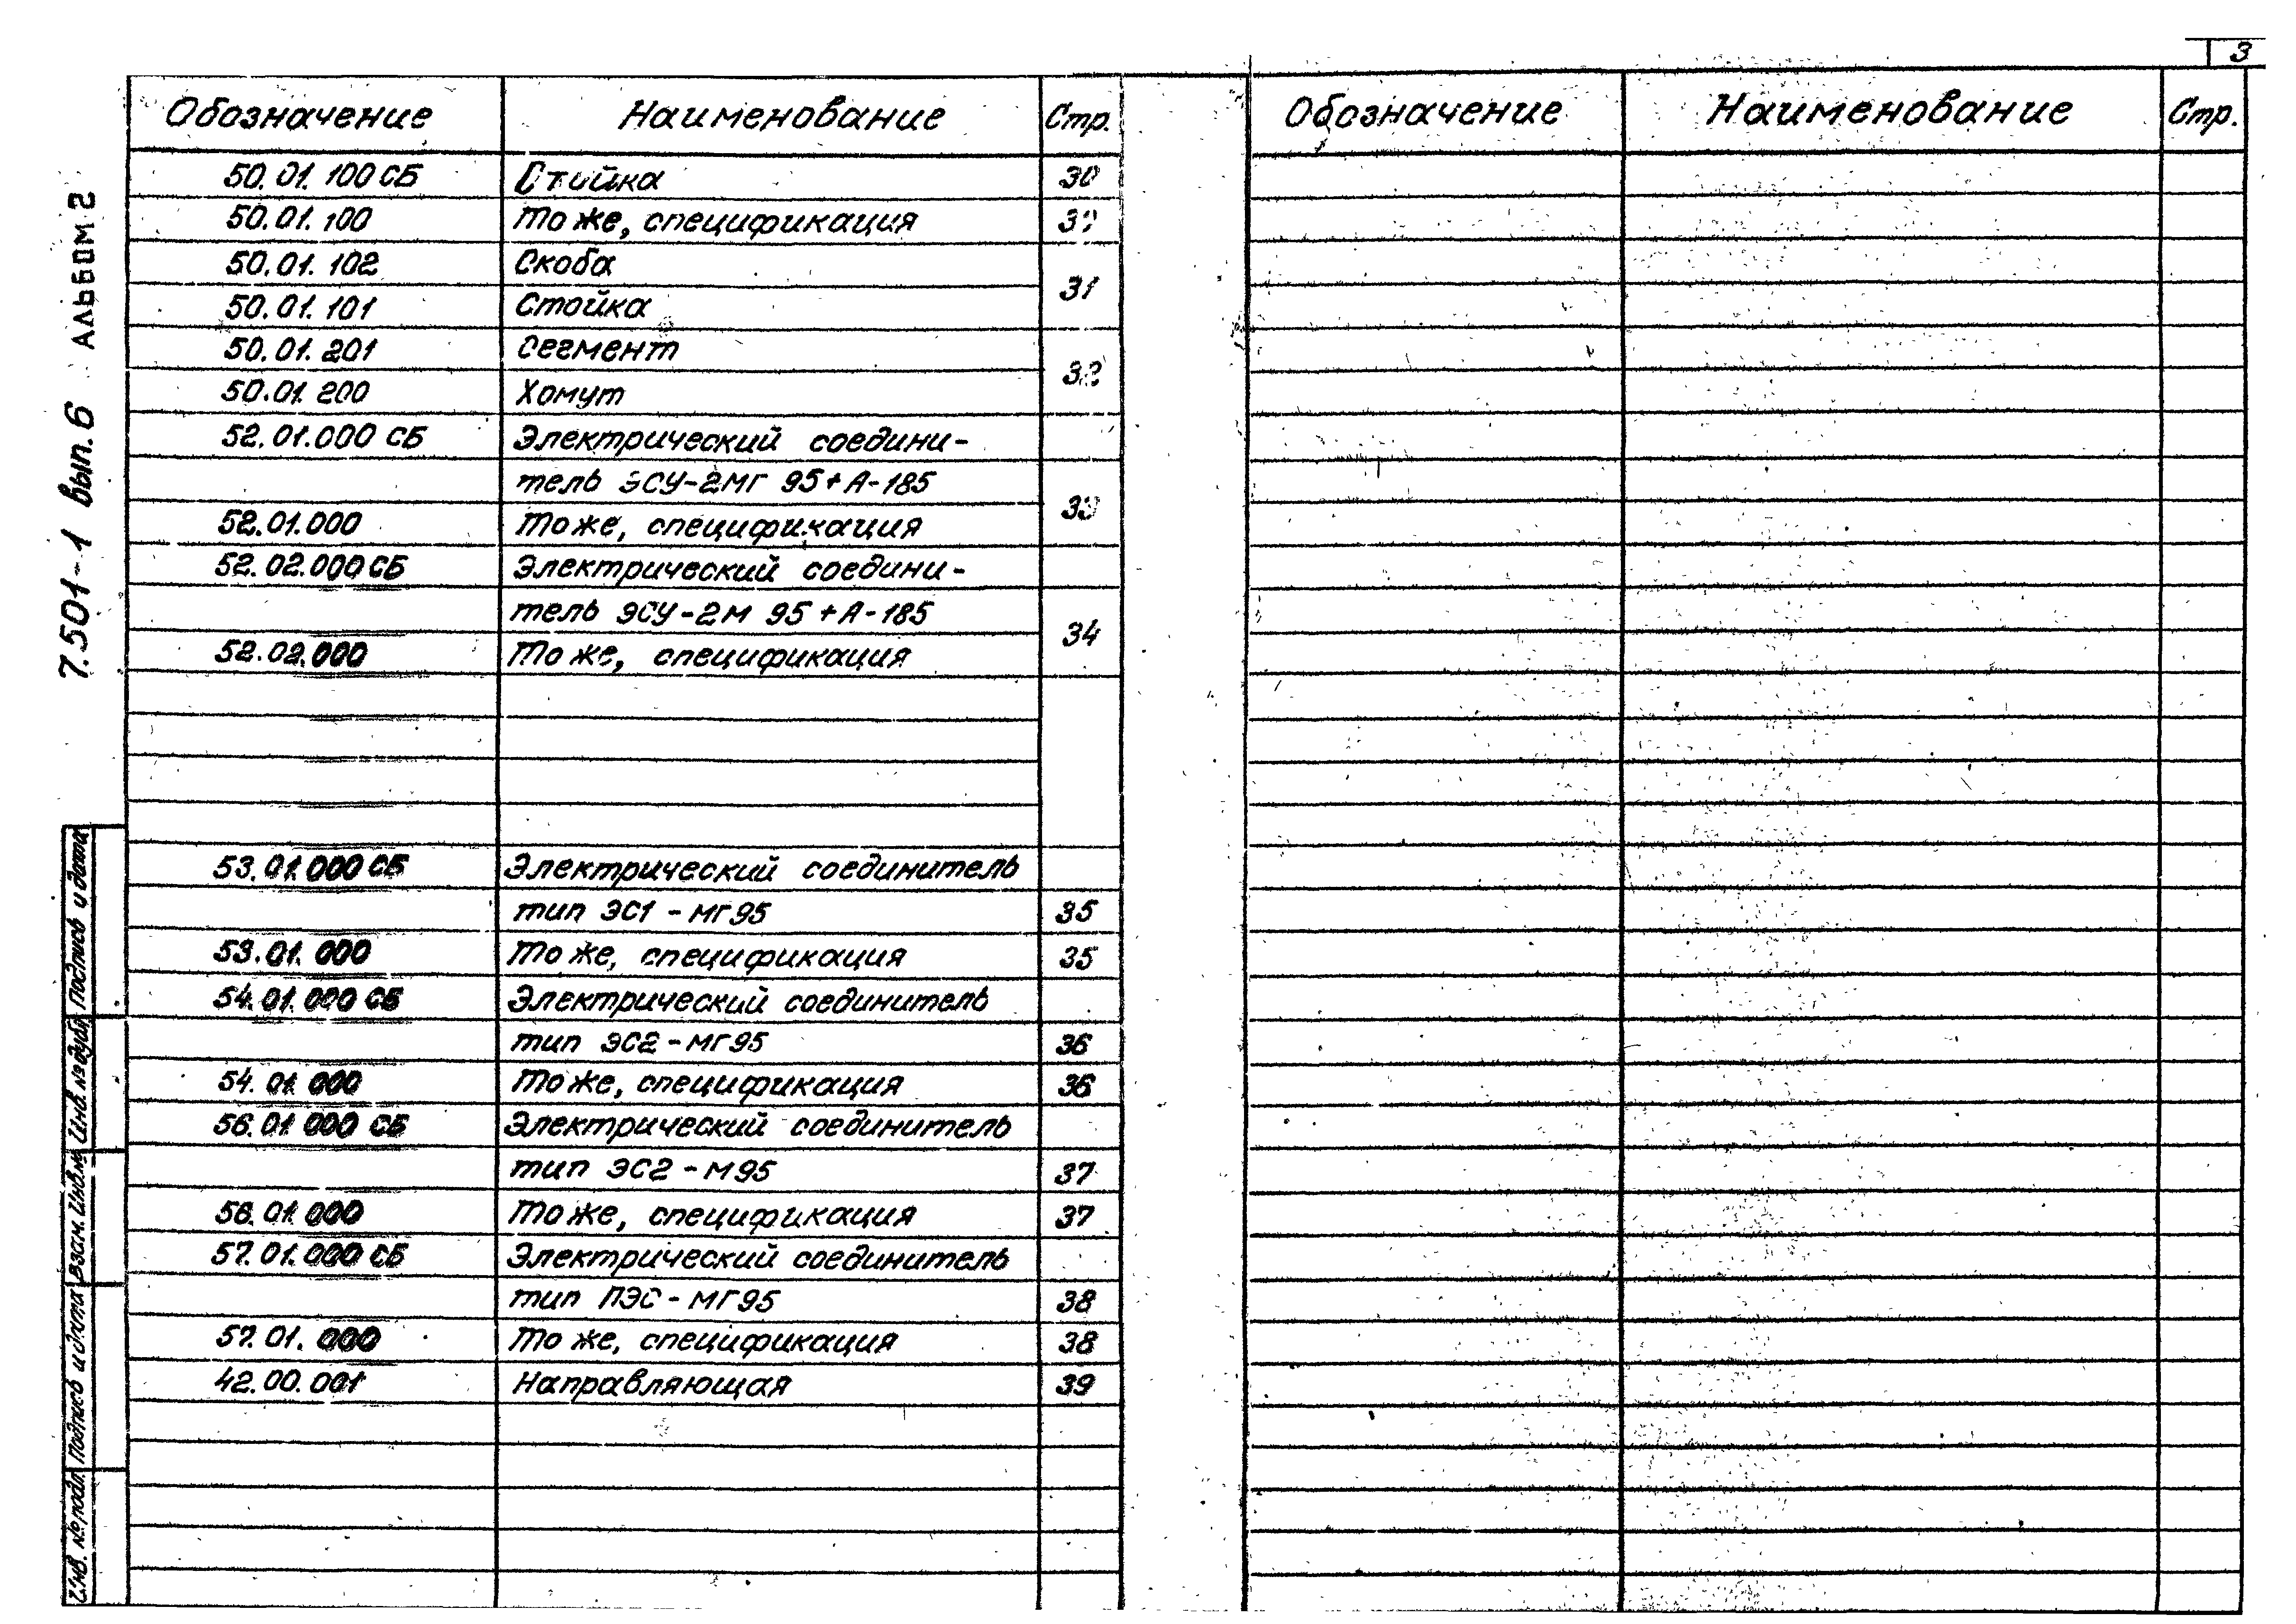 3
Обозначение Наименование Стр.
50.01.100 СБ Стойка 30
50.01.100 То же, спецификация
50.01.102 Скоба
31
50.01.101 Стойка
50.01.201 Сегмент
32
50.01.200 Хомут
52.01.000 СБ Электрический соедини-
тель ЭСУ-2МГ 95+А-185
33
52.01.000 То же, спецификация
52.02.000 СБ Электрический соедини-
тель ЭСУ-2М 95+А-185
34
52.02.000 То же, спецификация
53.01.000 СБ Электрический соединитель
тип ЭС1-МГ95 35
53.01.000 То же, спецификация 35
54.01.000 СБ Электрический соединитель
тип ЭС2-МГ95 36
54.01.000 То же, спецификация 36
56.01.000 СБ Электрический соединитель
тип ЭС2-М95 37
56.01.000 То же, спецификация 37
57.01.000 СБ Электрический соединитель
тип ПЭС-МГ95 38
57.01.000 То же, спецификация 38
42.00.001 Направляющая 39
Обозначение Наименование Стр.
7.501-1 вып.6 АЛЬБОМ 2
Инв. № подл. Подпись и дата Взам. Инв. № Инв. № дубл. Подпись и дата